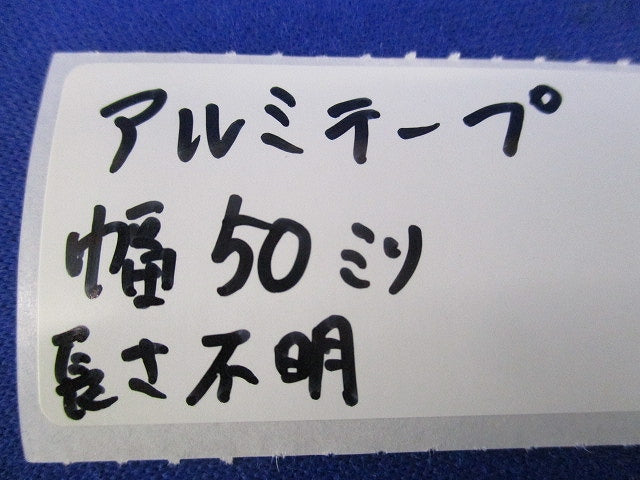 アルミテープ
幅 50ミリ
長さ不明